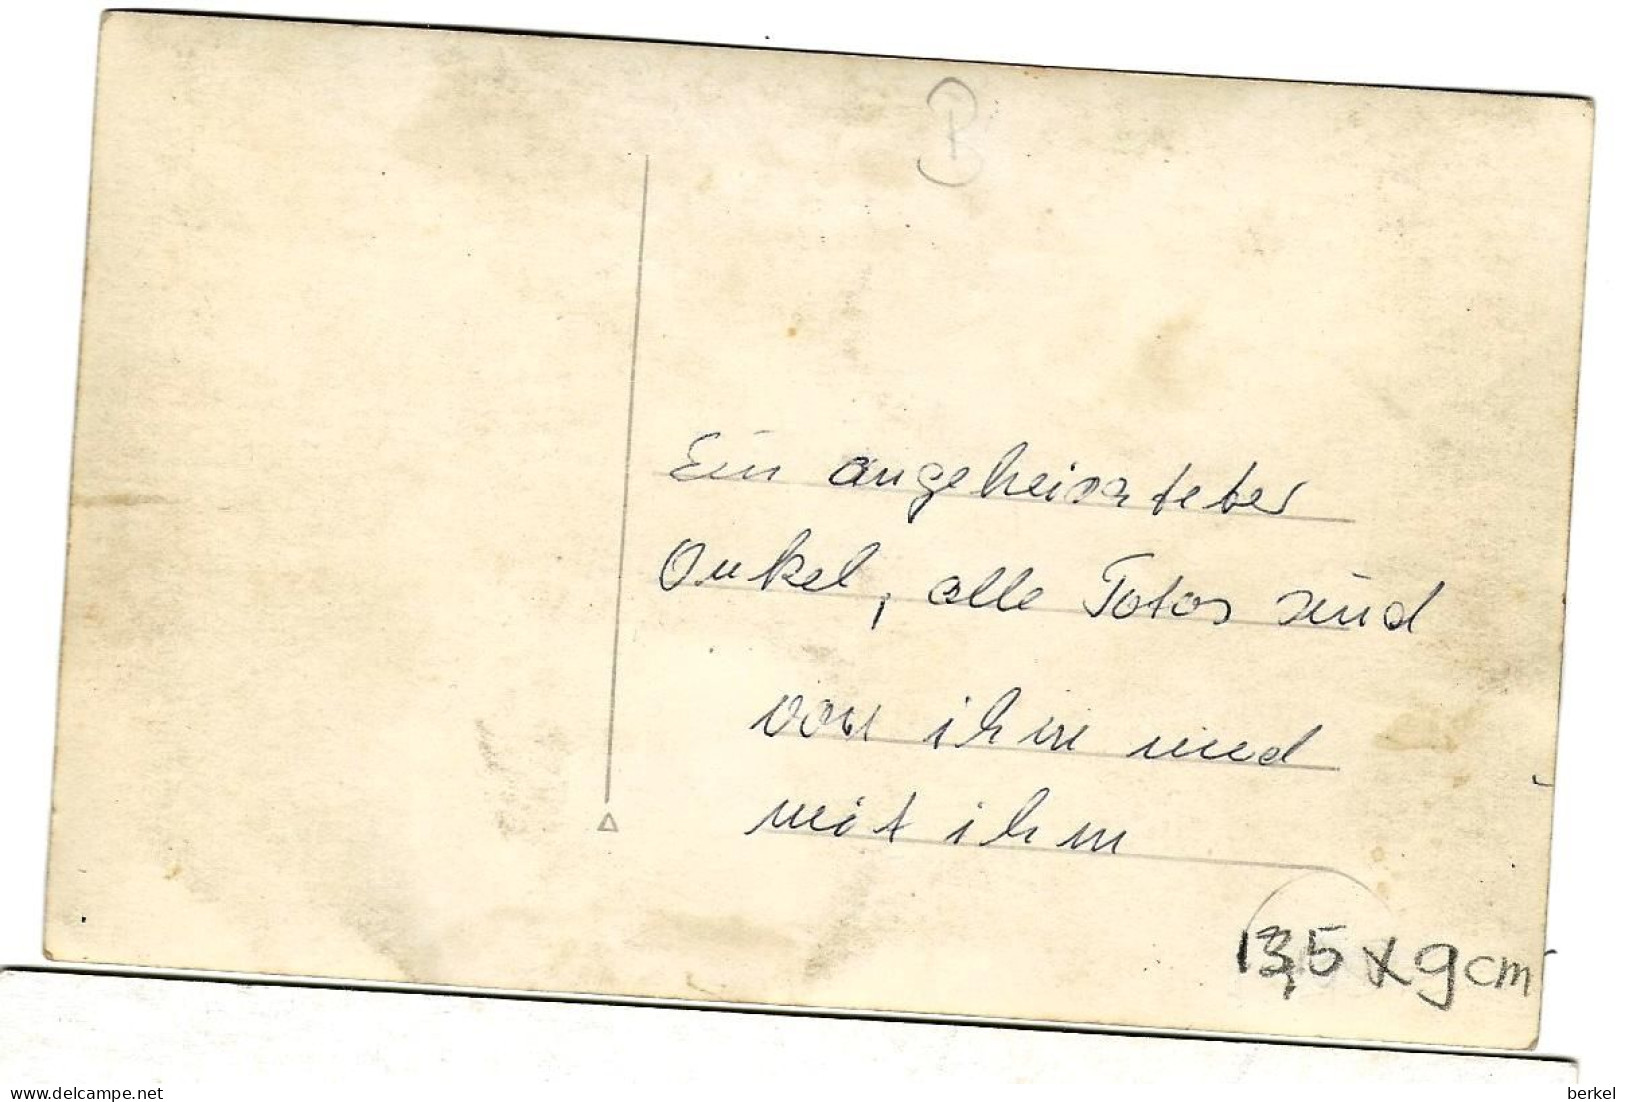 Ein angeheirateter
Onkel, alle Fotos sind
von ihm und
mit ihm
13,5 x 9 cm
www.delcampe.net
berkel